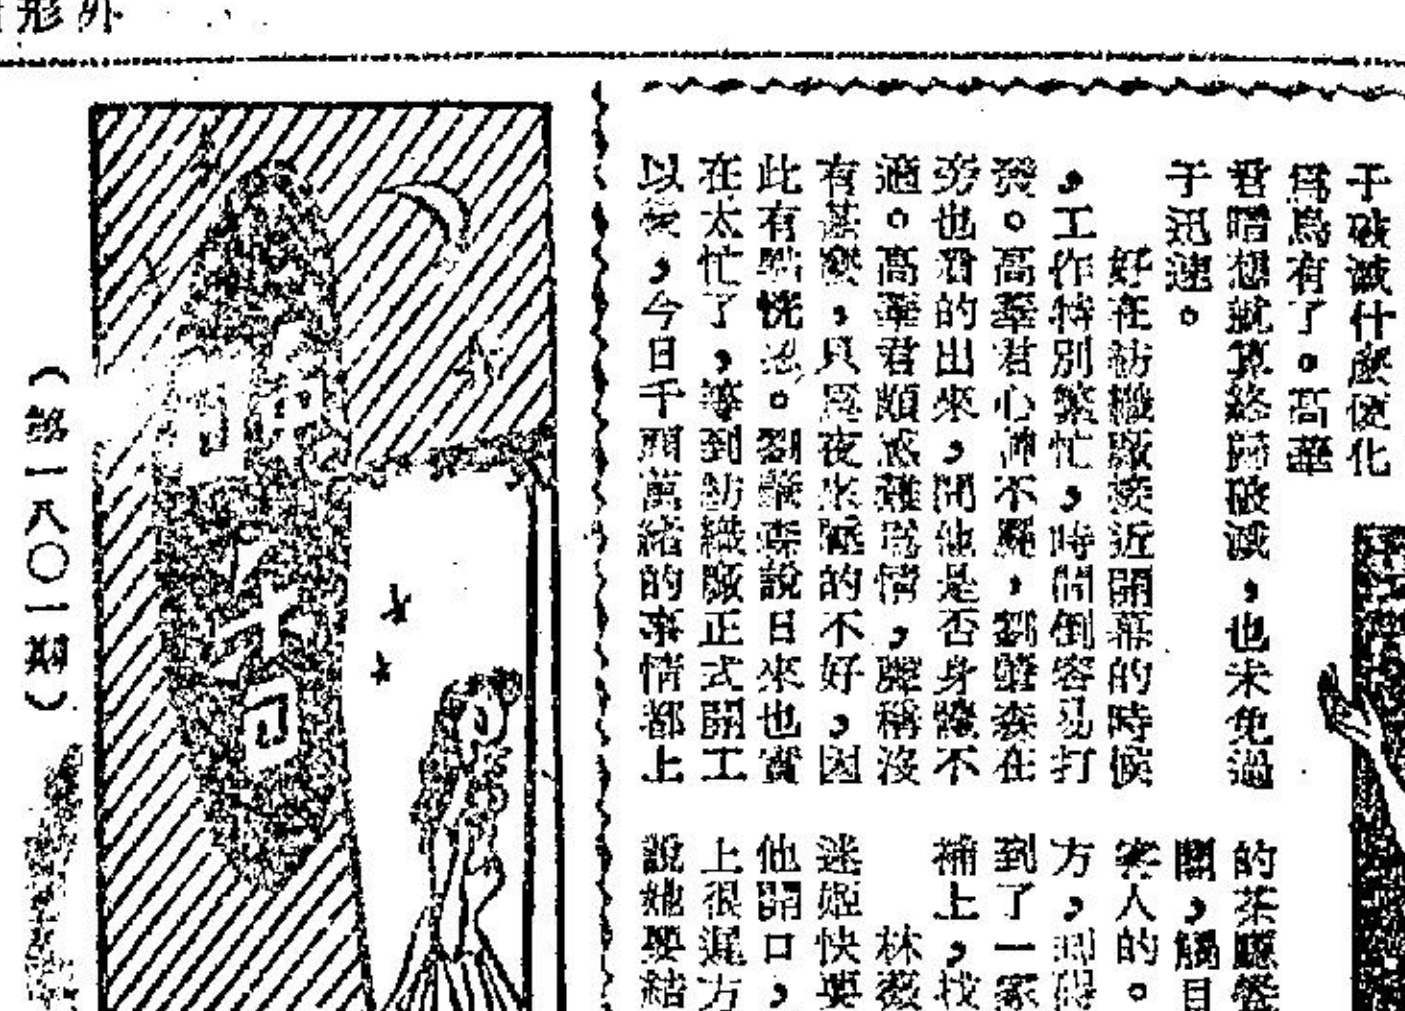 形外
于破滅什麽便化
爲烏有了。高華
君暗想就算終歸破滅,也未免過
于迅速。
好在紡織廠接近開幕的時候
,工作特別繁忙,時間倒容易打
發。高華君心神不屬,劉繼森在
旁也看的出來,問他是否身體不
適。高華君頗感難爲情,謊稱沒
有甚麽,只爲夜來睡的不好,因
此有點恍忽。劉繼森說日來也實
在太忙了,等到紡織廠正式開工
以後,今日千頭萬緒的事情都上
的茶廳餐
關,觸目
客人的。
方,到
到了一家
補上,找
林薇
迷姬快要
他開口,
上很遲方
說她要結
(第一八〇一期)